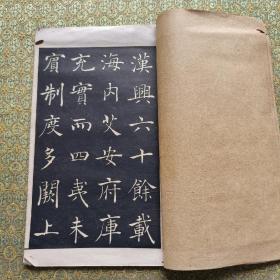 漢興六十餘載
海内艾安府庫
充實而四夷未
賓制度多闕上